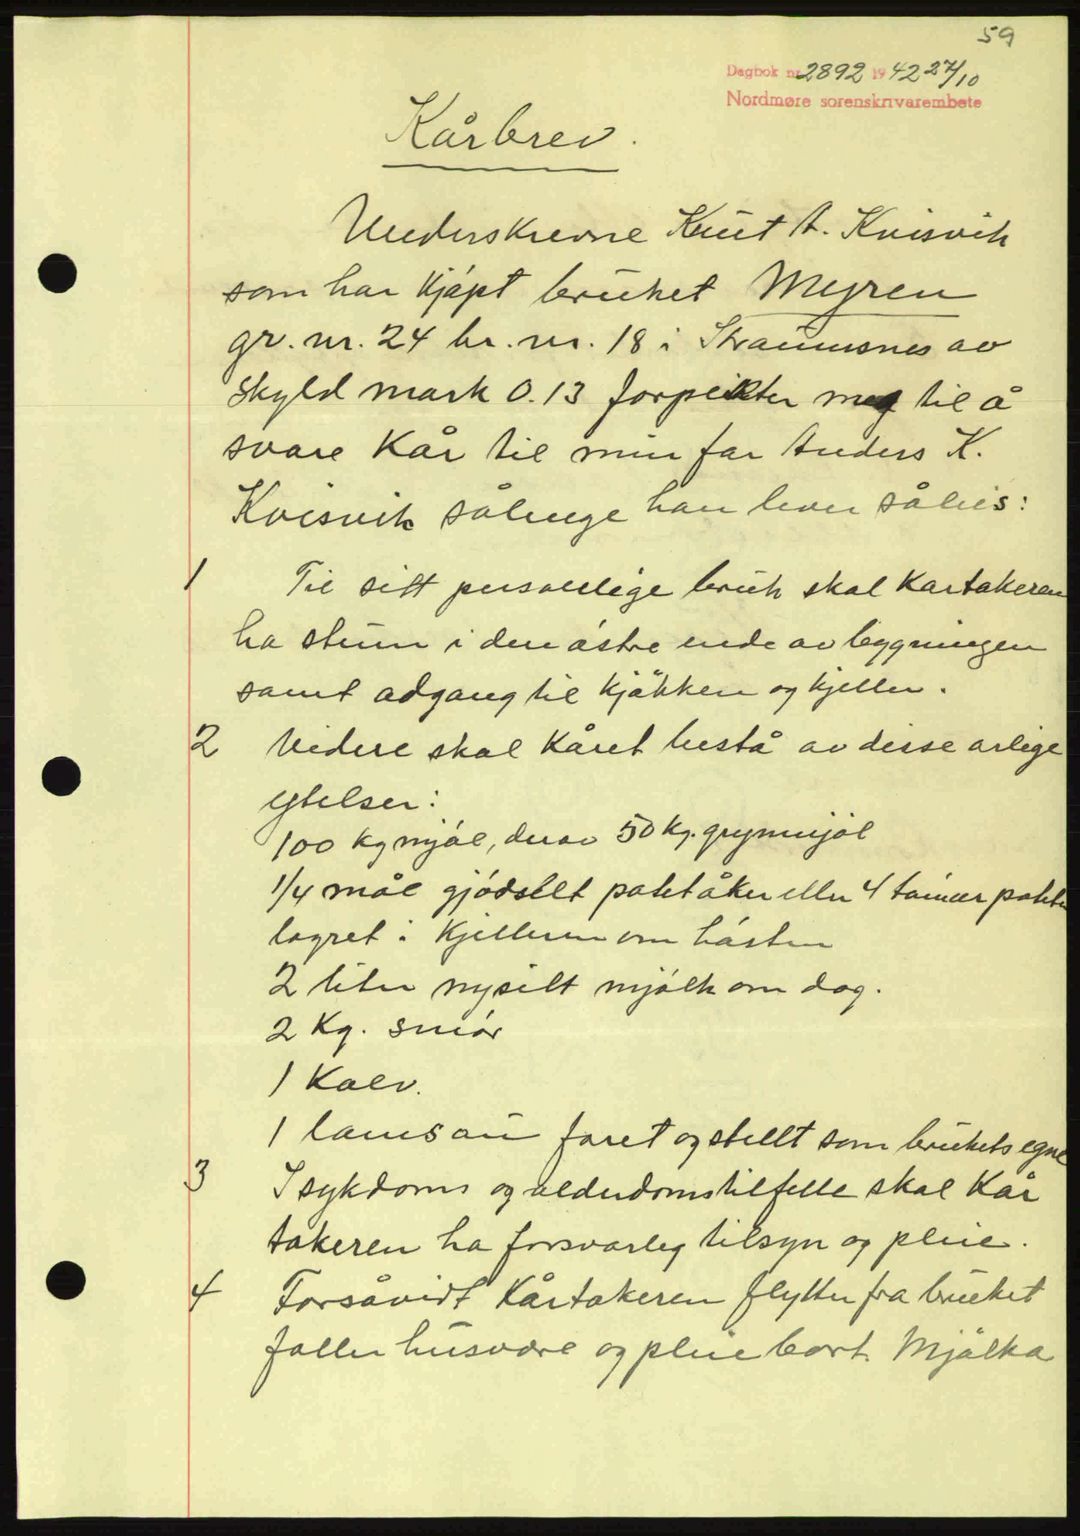 59
Dagbok nr. 2892 1942 27/10
Nordmøre sorenskrivarembete
Kårbrev.
Underskrevne Knut A. Kvisvik
som har kjøpt bruket Myren
gr. nr. 24 br. nr. 18 i Straumsnes av
skyld mark 0.13 forpikter meg til å
svare kår til min far Anders K.
Kvisvik sålenge han lever såleis:
1 Til sitt personlige bruk skal Kartakeren
ha stuen i den østre ende av byggningen
samt adgang til kjøkken og kjeller.
2 Videre skal Kåret bestå av disse arlige
ytelser:
100 kg mjøl, derav 50 kg. grynmjøl
1/4 mål gjødslet potetåker eller 4 tønner poteter
lagret i kjelleren om høsten
2 liter nysilt mjølk om dag.
2 Kg. smør
1 Kalv.
1 lamsau foret og stellt som brukets egne
3 I sykdoms og alderdomstilfelle skal Kår
takeren ha forsvarleg tilsyn og pleie.
4 Forsåvidt Kårtakeren flytter fra bruket
faller husvære og pleie bort. Mjølka